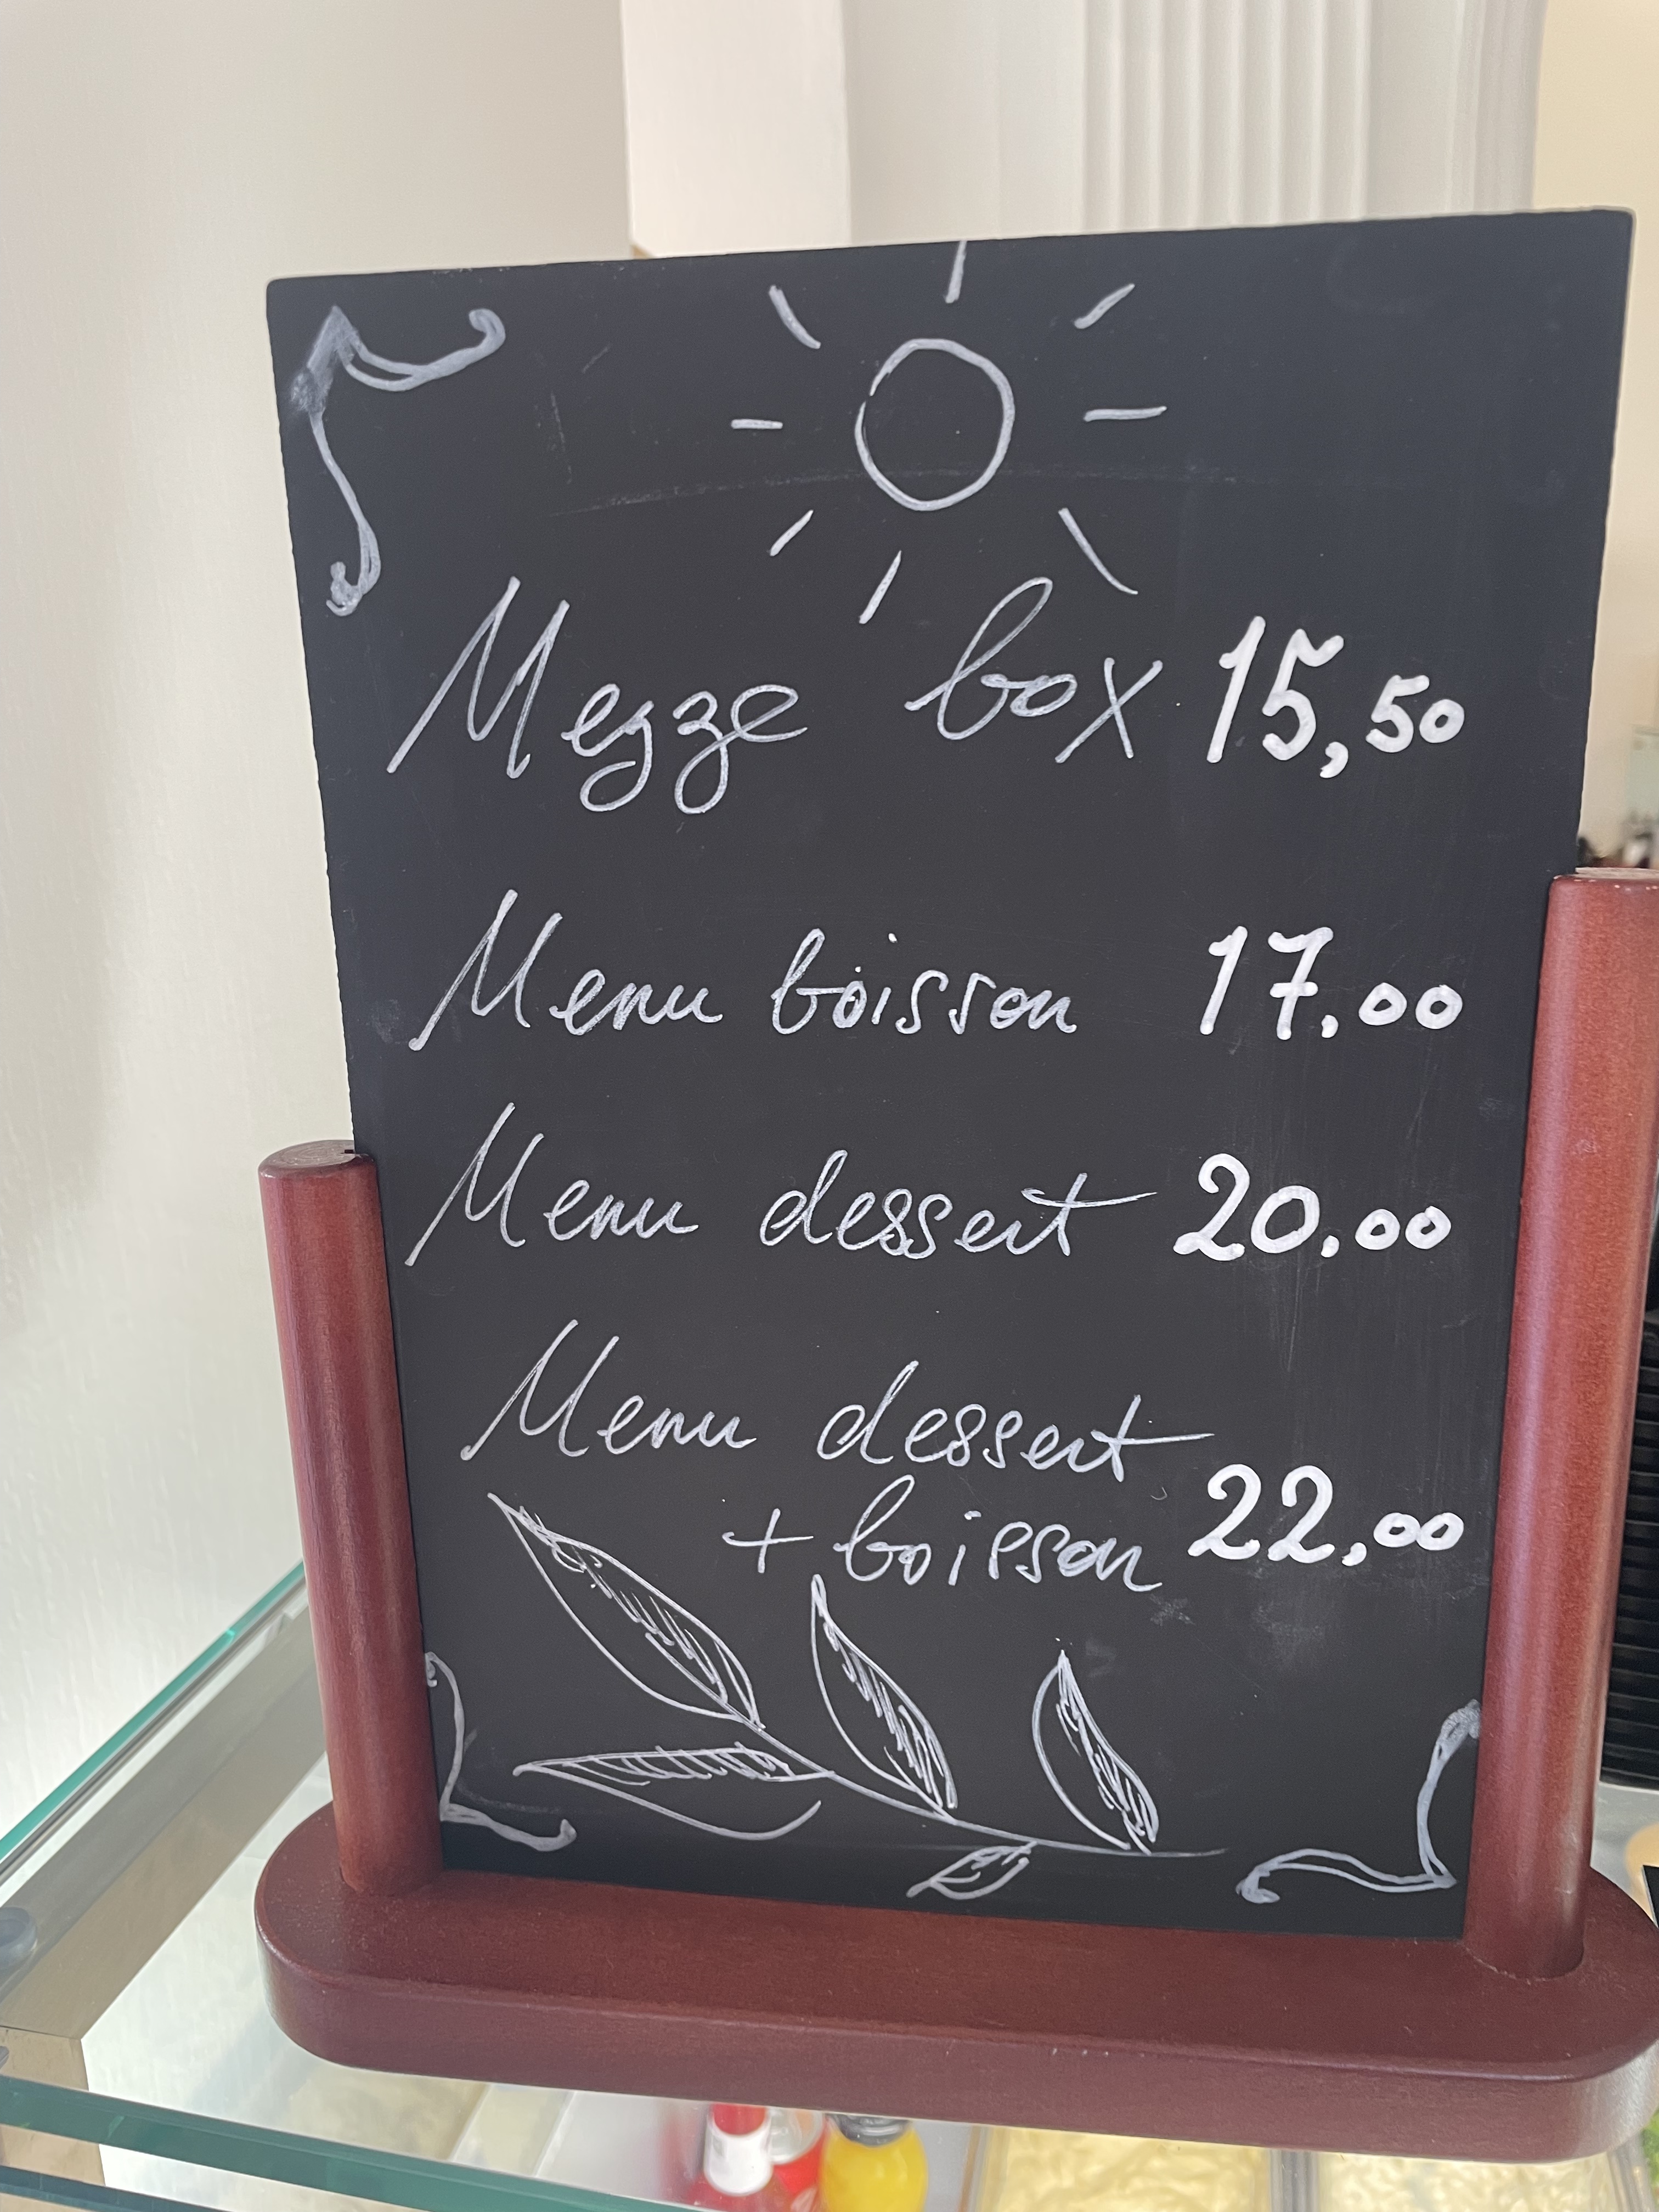 Mezze box 15,50
Menu boisson 17.00
Menu dessert 20.00
Menu dessert
+ boisson 22,00